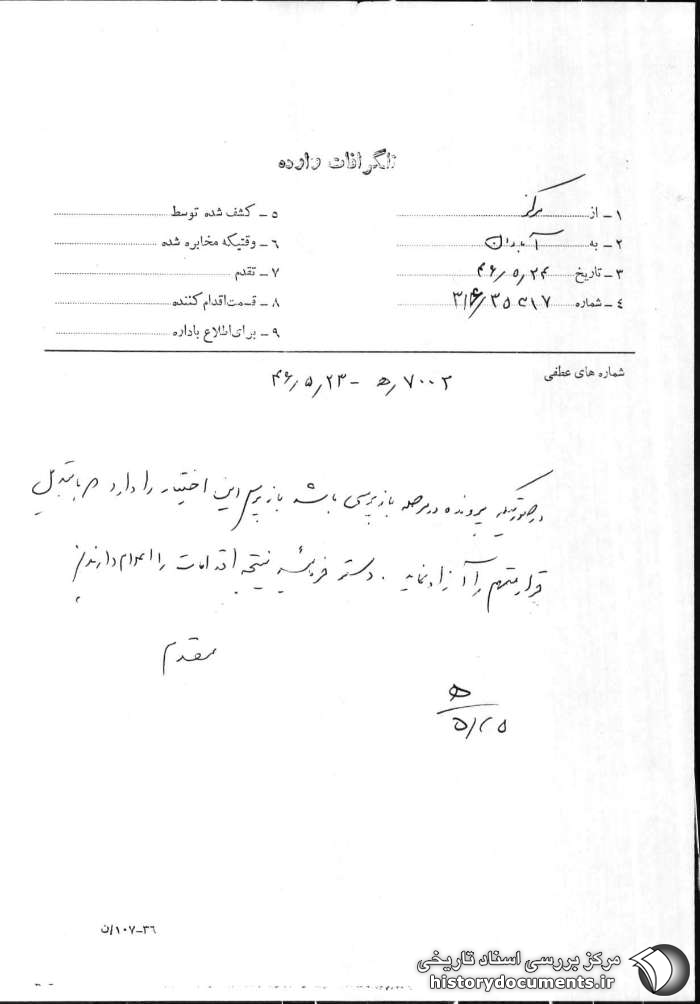 تلگرافات وارده
۱ - از مرکز
۲ - به آبادان
۳ - تاریخ ۴۶/۵/۲۴
۴ - شماره ۳۱۶/۳۵۲۱۷
۵ - کشف شده توسط
۶ - وقتیکه مخابره شده
۷ - تقدم
۸ - قسمت اقدام کننده
۹ - برای اطلاع باداره
شماره های عطفی ۷۰۰۲/ه‍ - ۴۶/۵/۲۳
در صورتیکه پرونده در مرحله بازپرسی باشد بازپرس این اختیار را دارد که با تبدیل
قرار متهم را آزاد نماید . دستور فرمائید نتیجه اقدامات را اعلام دارند
مقدم
ه‍
۵/۲۵
۳۶-۱۰۷/ن
مرکز بررسی اسناد تاریخی
historydocuments.ir